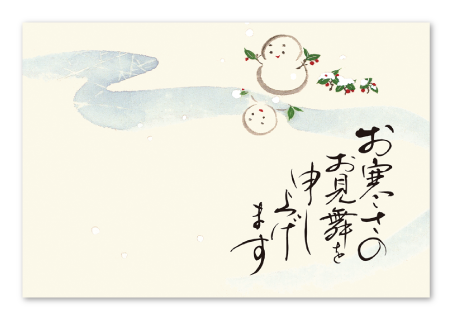 お寒さの
お見舞を
申し
上げ
ます